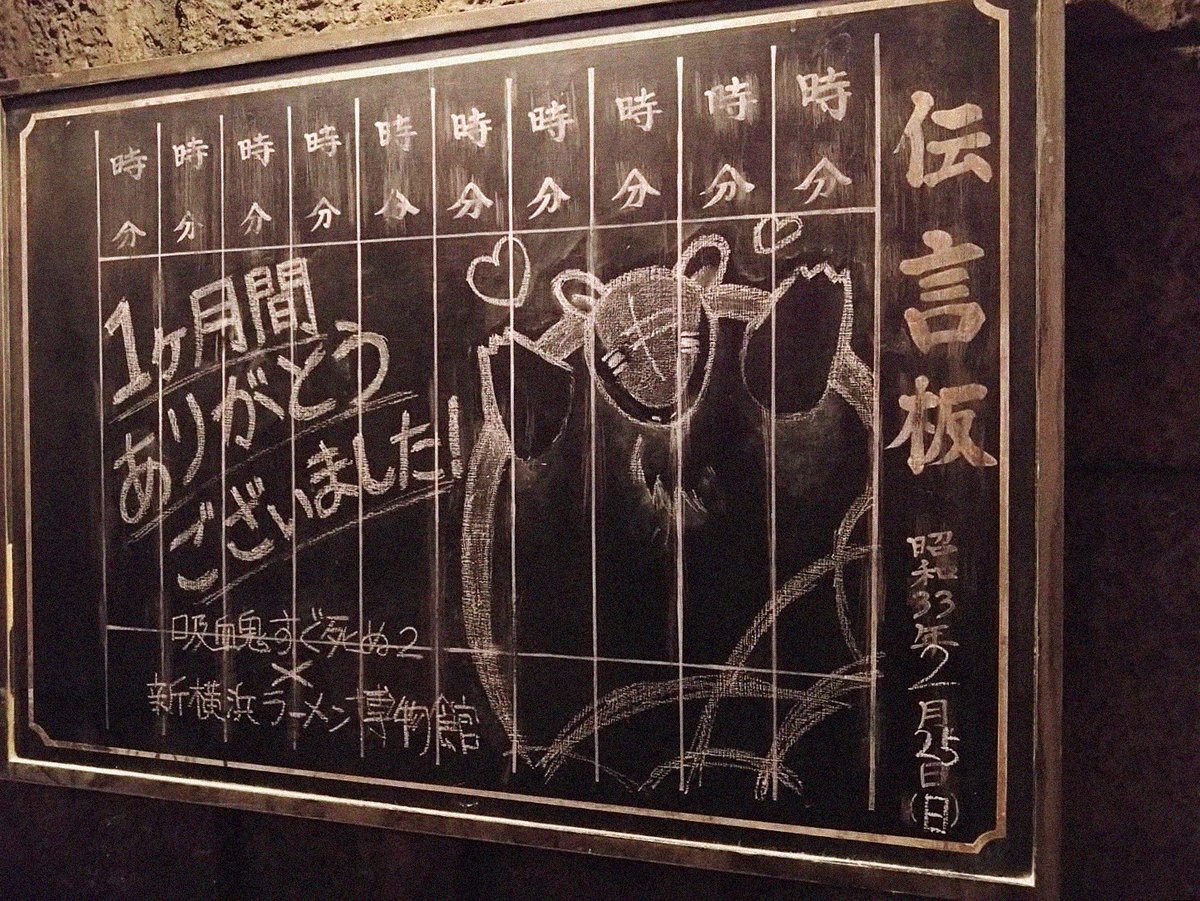 伝言板
昭和33年2月25日(日)
時分
時分
時分
時分
時分
時分
時分
時分
時分
時分
1ヶ月間
ありがとう
ございました!
吸血鬼すぐ死ぬ2
×
新横浜ラーメン博物館